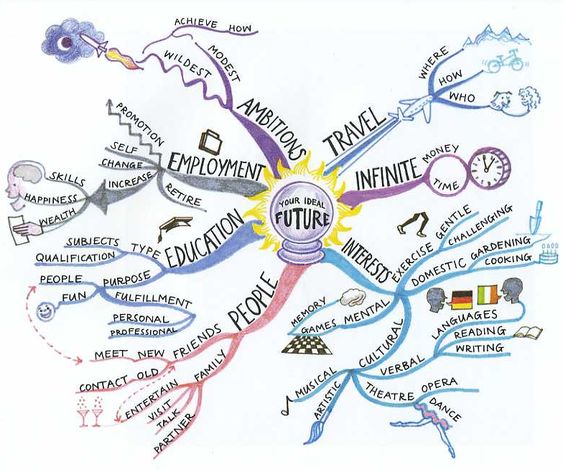 YOUR IDEAL
FUTURE
AMBITIONS
MODEST
ACHIEVE HOW
WILDEST
TRAVEL
WHERE
HOW
WHO
INFINITE
MONEY
TIME
INTERESTS
EXERCISE
GENTLE
CHALLENGING
DOMESTIC
GARDENING
COOKING
MENTAL
MEMORY
GAMES
CULTURAL
VERBAL
LANGUAGES
READING
WRITING
THEATRE
OPERA
DANCE
MUSICAL
ARTISTIC
PEOPLE
FRIENDS
MEET NEW
CONTACT OLD
FAMILY
ENTERTAIN
VISIT
TALK
PARTNER
EDUCATION
TYPE
SUBJECTS
QUALIFICATION
PURPOSE
PEOPLE
FUN
FULFILLMENT
PERSONAL
PROFESSIONAL
EMPLOYMENT
PROMOTION
SELF
CHANGE
INCREASE
SKILLS
HAPPINESS
WEALTH
RETIRE